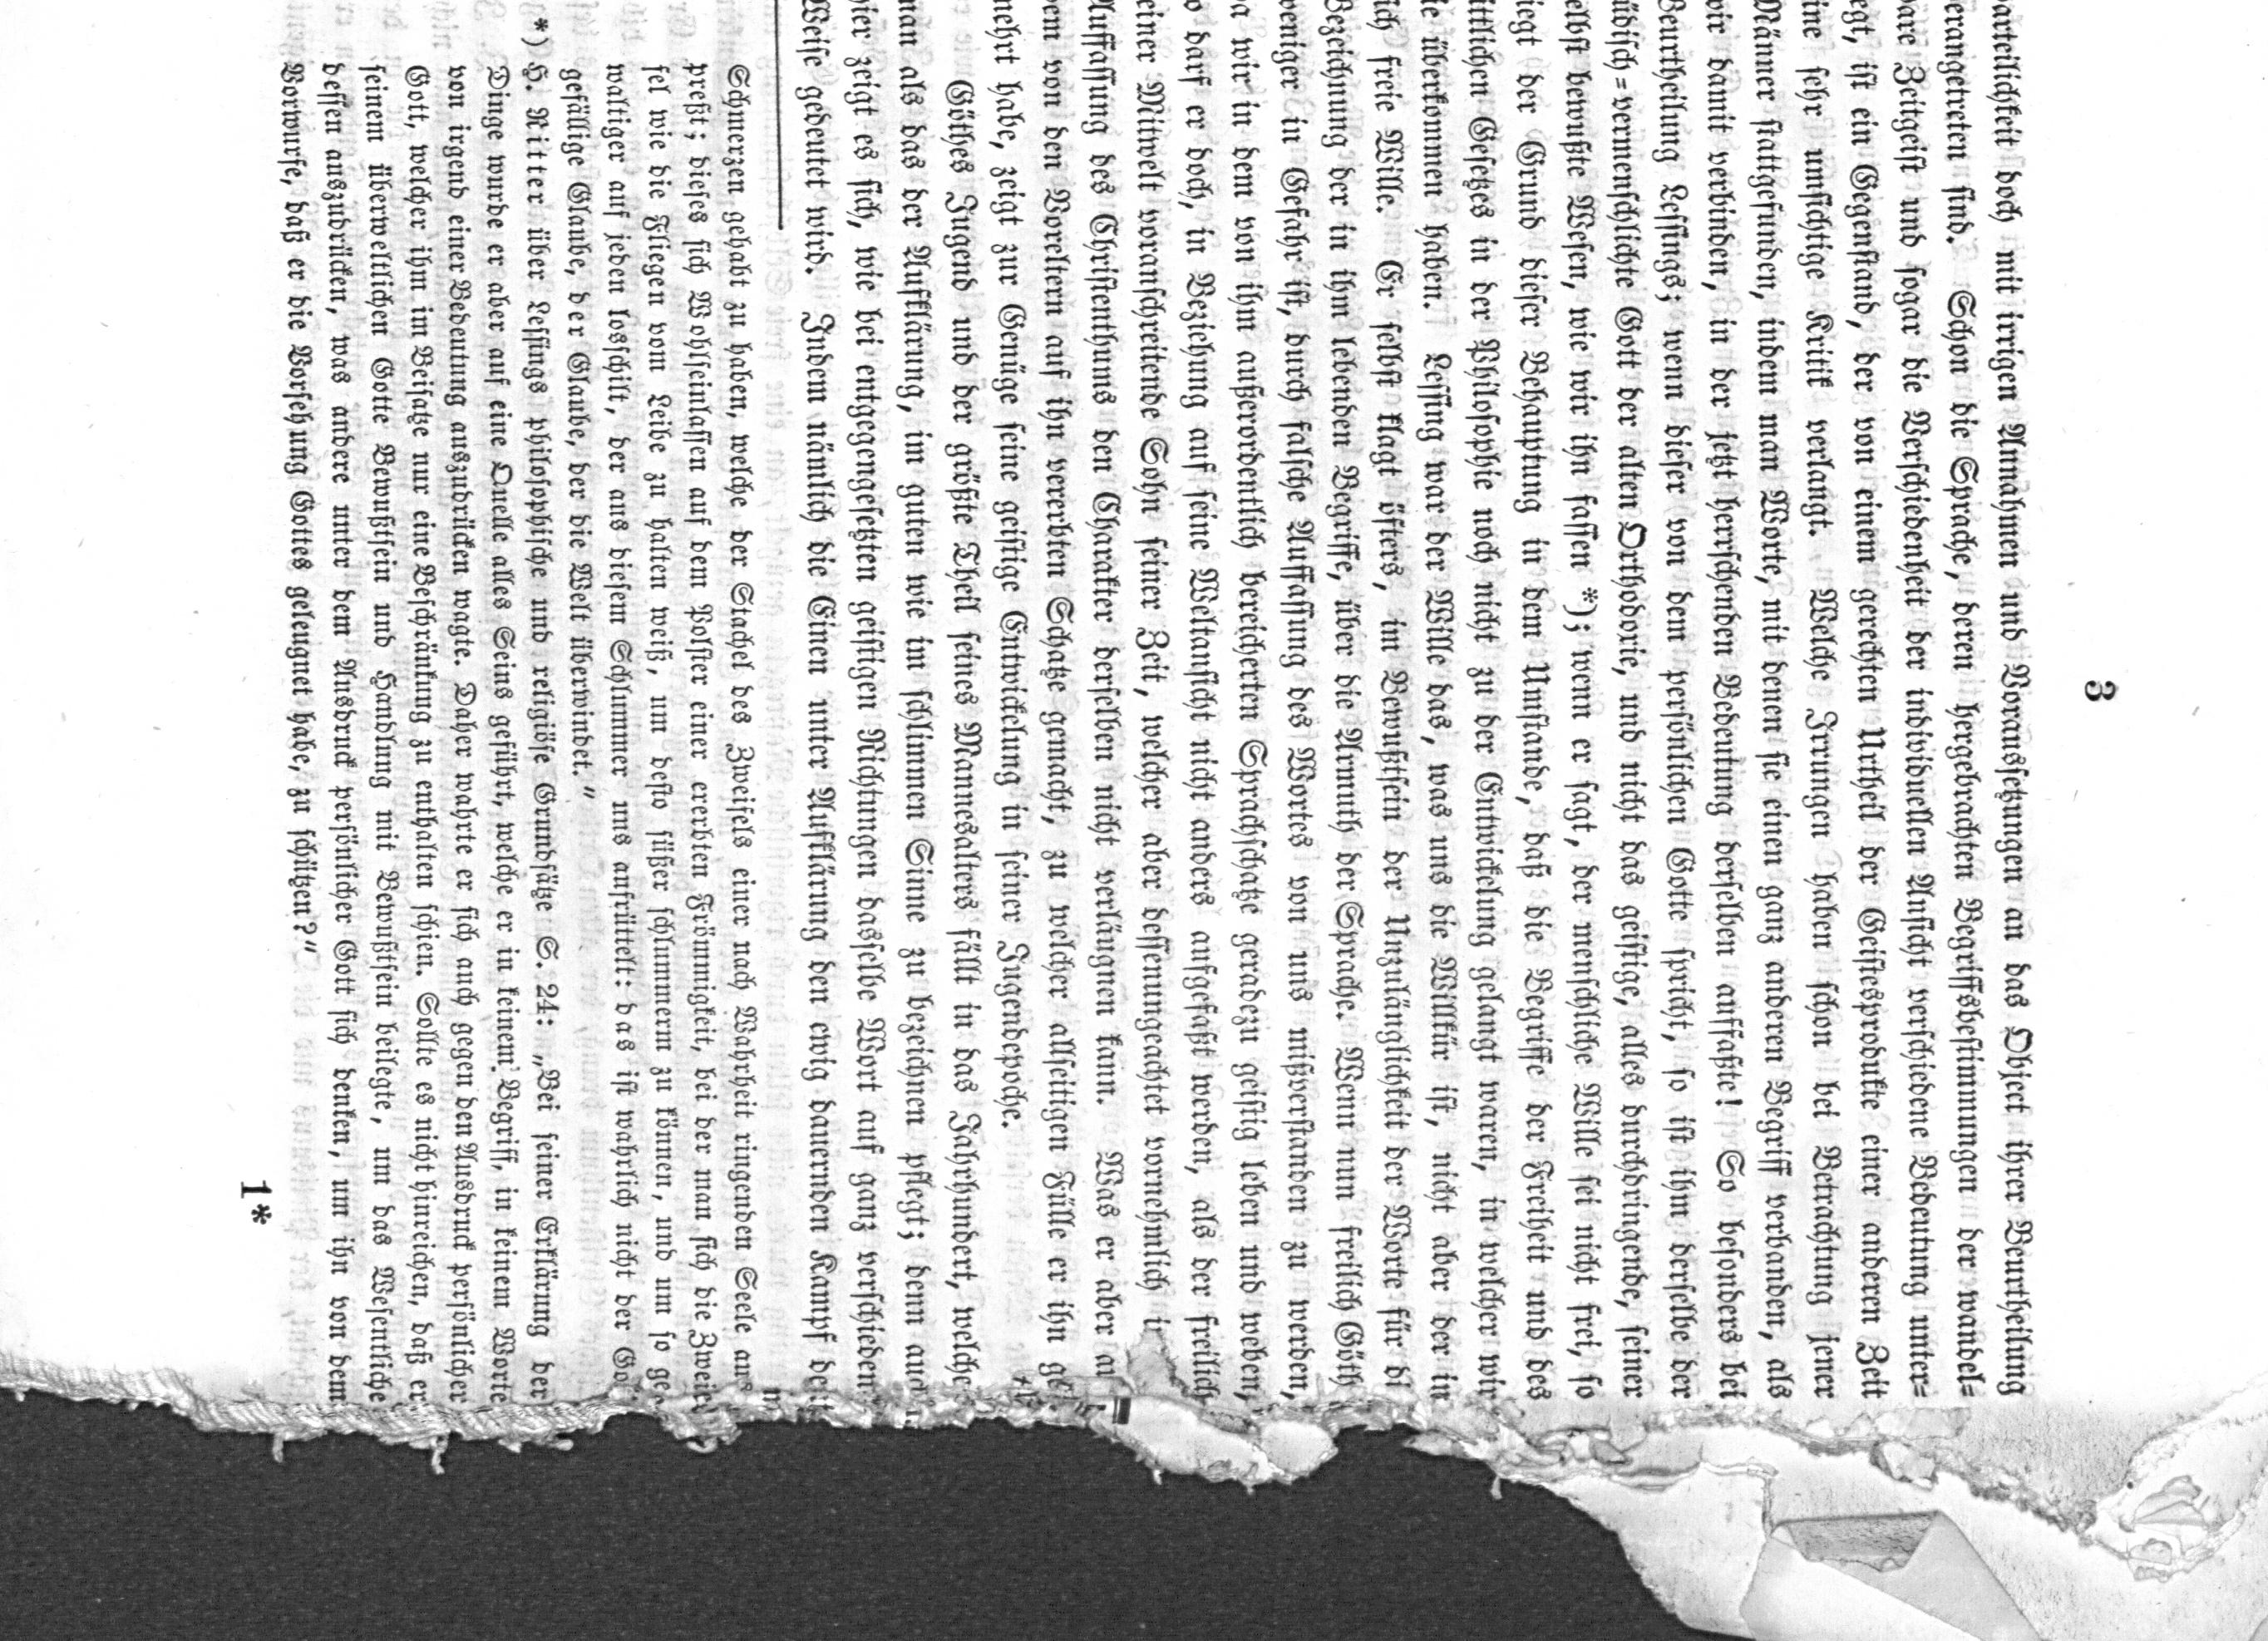 3
parteilichkeit doch mit irrigen Annahmen und Voraussetzungen an das Object ihrer Beurtheilung
herangetreten sind. Schon die Sprache, deren hergebrachten Begriffsbestimmungen der wandel=
bare Zeitgeist und sogar die Verschiedenheit der individuellen Ansicht verschiedene Bedeutung unter=
legt, ist ein Gegenstand, der von einem gerechten Urtheil der Geistesprodukte einer anderen Zeit
eine sehr umsichtige Kritik verlangt. Welche Irrungen haben schon bei Betrachtung jener
Männer stattgefunden, indem man Worte, mit denen sie einen ganz anderen Begriff verbanden, als
wir damit verbinden, in der jetzt herrschenden Bedeutung derselben auffaßte! So besonders bei
Beurtheilung Lessings; wenn dieser von dem persönlichen Gotte spricht, so ist ihm derselbe der
jüdisch=vermenschlichte Gott der alten Orthodoxie, und nicht das geistige, alles durchdringende, seiner
selbst bewußte Wesen, wie wir ihn fassen *); wenn er sagt, der menschliche Wille sei nicht frei, so
liegt der Grund dieser Behauptung in dem Umstande, daß die Begriffe der Freiheit und des
sittlichen Gesetzes in der Philosophie noch nicht zu der Entwickelung gelangt waren, in welcher wir
sie überkommen haben. Lessing war der Wille das, was uns die Willkür ist, nicht aber der in
sich freie Wille. Er selbst klagt öfters, im Bewußtsein der Unzulänglichkeit der Worte für di
Bezeichnung der in ihm lebenden Begriffe, über die Armuth der Sprache. Wenn nun freilich Göth
weniger in Gefahr ist, durch falsche Auffassung des Wortes von uns mißverstanden zu werden,
da wir in den von ihm außerordentlich bereicherten Sprachschatze geradezu geistig leben und weben,
so darf er doch, in Beziehung auf seine Weltansicht nicht anders aufgefaßt werden, als der freilich
seiner Mitwelt voranschreitende Sohn seiner Zeit, welcher aber dessenungeachtet vornehmlich i
Auffassung des Christenthums den Charakter derselben nicht verläugnen kann. Was er aber a
dem von den Voreltern auf ihn vererbten Schatze gemacht, zu welcher allseitigen Fülle er ihn ge
mehrt habe, zeigt zur Genüge seine geistige Entwickelung in seiner Jugendepoche.
Göthes Jugend und der größte Theil seines Mannesalters fällt in das Jahrhundert, welche
man als das der Aufklärung, im guten wie im schlimmen Sinne zu bezeichnen pflegt; denn auch
hier zeigt es sich, wie bei entgegengesetzten geistigen Richtungen dasselbe Wort auf ganz verschieden
Weise gedeutet wird. Indem nämlich die Einen unter Aufklärung den ewig dauernden Kampf de
Schmerzen gehabt zu haben, welche der Stachel des Zweifels einer nach Wahrheit ringenden Seele aus
preßt; dieses sich Wohlseinlassen auf dem Polster einer ererbten Frömmigkeit, bei der man sich die Zwei
fel wie die Fliegen vom Leibe zu halten weiß, um desto süßer schlummern zu können, und um so ge
waltiger auf jeden losschilt, der aus diesem Schlummer uns aufrüttelt: das ist wahrlich nicht der Go
gefällige Glaube, der Glaube, der die Welt überwindet."
*) H. Ritter über Lessings philosophische und religiöse Grundsätze S. 24: „Bei seiner Erklärung der
Dinge wurde er aber auf eine Quelle alles Seins geführt, welche er in keinem Begriff, in keinem Worte
von irgend einer Bedeutung auszudrücken wagte. Daher wahrte er sich auch gegen den Ausdruck persönlicher
Gott, welcher ihm im Beisatze nur eine Beschränkung zu enthalten schien. Sollte es nicht hinreichen, daß er
seinem überweltlichen Gotte Bewußtsein und Handlung mit Bewußtsein beilegte, um das Wesentliche
dessen auszudrücken, was andere unter dem Ausdruck persönlicher Gott sich denken, um ihn von dem
Vorwurfe, daß er die Vorsehung Gottes geleugnet habe, zu schützen?"
1*